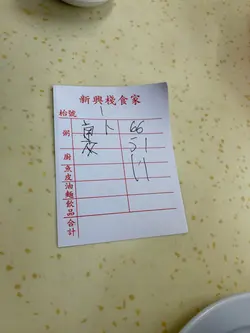 新興棧食家
枱號 1
粥 卜 66
51
廚
魚皮
油麵
飲品
合計